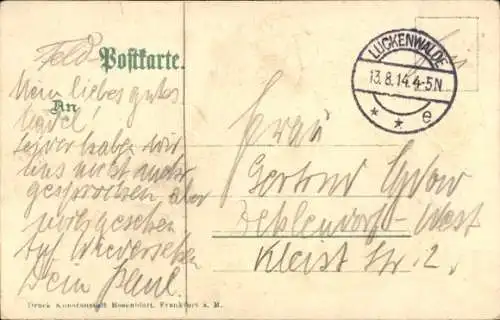 Feld-Postkarte.
Mein liebes gutes
An
Leider haben wir
uns nicht mehr
gesprochen, aber
Auf Wiedersehen
Dein Paul.
LUCKENWALDE
13.8.14.4-5N
* * e
Frau
Gertrud
Zehlendorf-West
Kleist Str. 2.
Druck Kunstanstalt Rosenblatt, Frankfurt a. M.